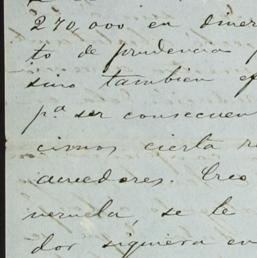 270,000 en diner
to de prudencia p
sino tambien ef
pª ser consecuen
cimos cierta re
acreedores. Creo
nezuela, se le
dor siquiera en